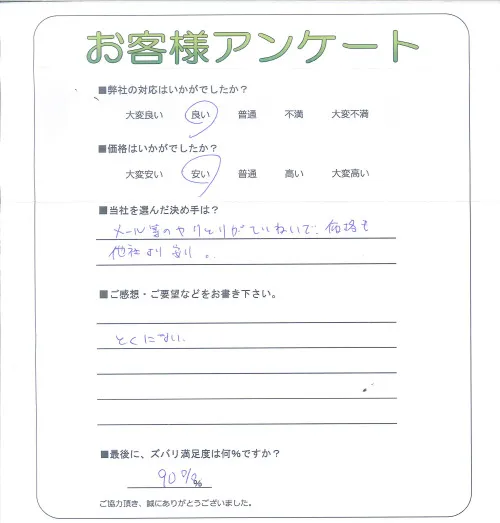 お客様アンケート
■弊社の対応はいかがでしたか？
大変良い 良い 普通 不満 大変不満
■価格はいかがでしたか？
大変安い 安い 普通 高い 大変高い
■当社を選んだ決め手は？
メール等のやりとりがていねいで、価格も
他社より安い。
■ご感想・ご要望などをお書き下さい。
とくにない。
■最後に、ズバリ満足度は何%ですか？
90%%
ご協力頂き、誠にありがとうございました。